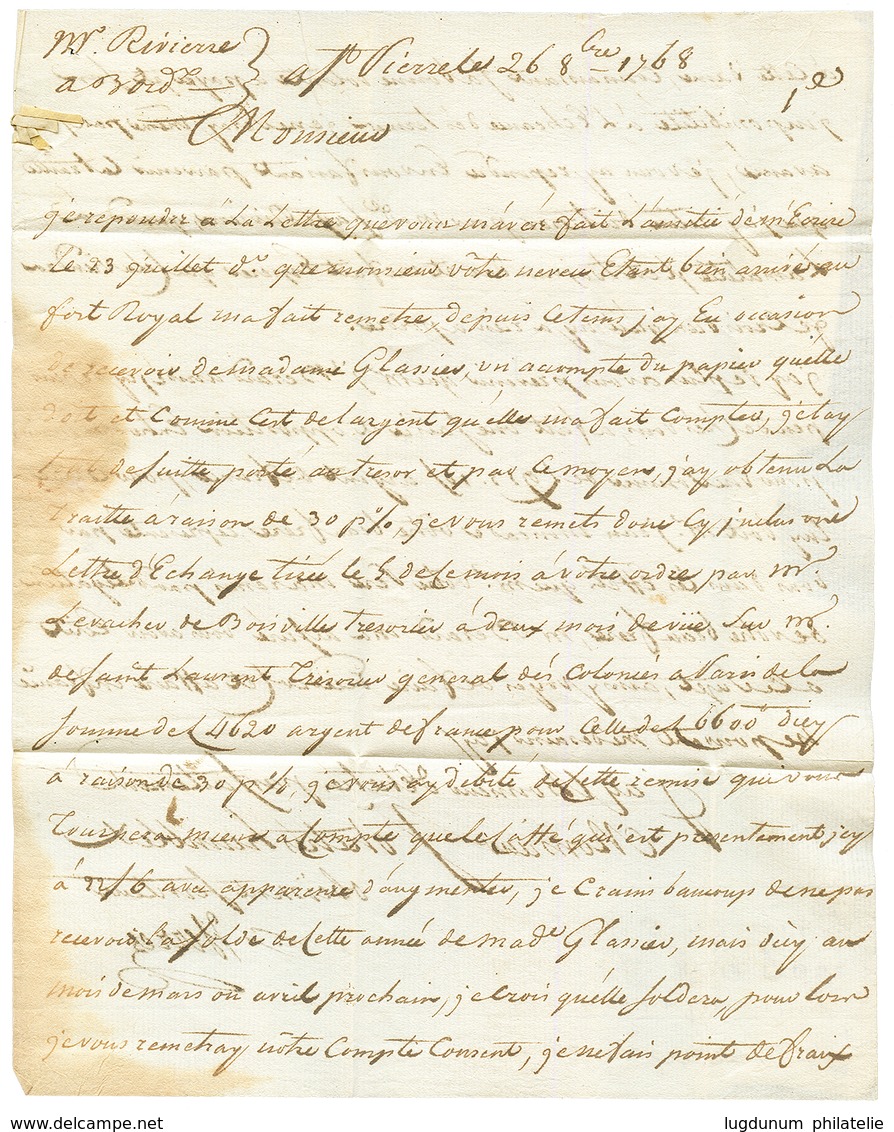 Mr. Rivierre
a Bordx
a St Pierre le 26 8bre 1768
Monsieur
je repondrer a La Lettre que vous m'avéz fait L'amitié de m'Ecrire
Le 23 Juillet dr. que monsieur vôtre neveu Etant bien arrivé au
fort Royal ma fait remetre depuis Cetems jay Eu occasion
de recevoir de madame Glassier, un acompte du papier qu'elle
doit et Comme C'est de l'argent qu'elle ma fait Compter, je lay
tout de suitte porté au tresor et par Ce moyen, j'ay obtenu La
traitte à raison de 30 p% je vous remets donc Cy jnclus une
Lettre d'Echange tirée le 5 de Ce mois à vôtre ordre par Mr.
Levacher de Boisville tresorier à deux mois de vüe Sur Mr.
de saint Laurent Tresorier general dés Colonies a Paris de la
somme de L 4620 argent de france pour Celle de L 6600 d'icy
à raison de 30 p% je vous ay debité de Cette remise qui vous
Tournera mieux a Compte que le Caffé qui est presentement jcy
à 22/6 avec apparence d'augmenter, je Crains baucoup de ne pas
recevoir La solde de Cette année de made Glassier, mais d'icy au
mois de mars ou avril prochain, je Crois qu'elle soldera, pour lors
je vous remetray vôtre Compte Courent, je ne fais point de fraix
www.delcampe.net
lugdunum philatelie